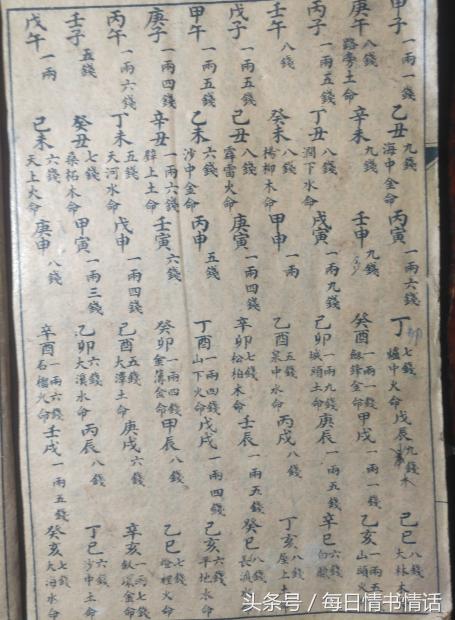 甲子 一兩一錢 乙丑 九錢 海中金命 丙寅 一兩六錢 丁卯 七錢 爐中火命 戊辰 九錢 木 己巳 八錢 大林木命
庚午 八錢 路旁土命 辛未 九錢 壬申 九錢 癸酉 一兩一錢 劍鋒金命 甲戌 一兩一錢 乙亥 一兩五 山頭火
丙子 一兩五錢 丁丑 八錢 澗下水命 戊寅 一兩九錢 己卯 一兩九錢 城頭土命 庚辰 一兩五錢 辛巳 六錢 白
壬午 八錢 癸未 八錢 楊柳木命 甲申 一兩 乙酉 五錢 泉中水命 丙戌 八錢 丁亥 八錢 屋上土
戊子 一兩五錢 己丑 八錢 霹雷火命 庚寅 一兩四錢 辛卯 七錢 松柏木命 壬辰 一兩五錢 癸巳 八錢 長流水
甲午 一兩五錢 乙未 六錢 沙中金命 丙申 五錢 丁酉 一兩四錢 山下火命 戊戌 一兩四錢 己亥 六錢 平地木命
庚子 一兩四錢 辛丑 一兩六錢 壁上土命 壬寅 六錢 癸卯 一兩四錢 金簿金命 甲辰 八錢 乙巳 七錢 燈裡火命
丙午 一兩六錢 丁未 五錢 天河水命 戊申 一兩四錢 己酉 五錢 大澤土命 庚戌 六錢 辛亥 一兩七錢 釵環金命
壬子 五錢 癸丑 七錢 桑柘木命 甲寅 一兩三錢 乙卯 六錢 大溪水命 丙辰 八錢 丁巳 六錢 沙中土命
戊午 一兩 己未 六錢 天上火命 庚申 八錢 辛酉 一兩六錢 石榴火命 壬戌 一兩五錢 癸亥 七錢 大海水命
头条号 / 每日情书情话